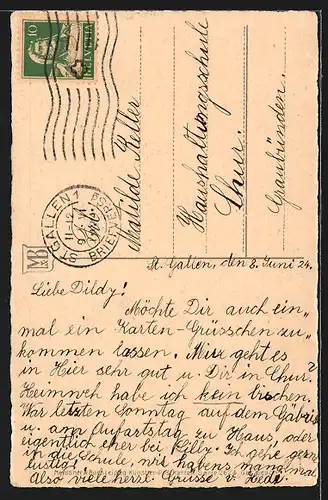 10
HELVETIA
ST. GALLEN 1
BRIEFVERSAND
M&B
Matilde Keller
Haushaltungsschule
Chur.
Graubünden.
St. Gallen, den 8. Juni 24.
Liebe Dildy!
Möchte Dir auch ein-
mal ein Karten-Grüsschen zu-
kommen lassen. Mir geht es
in Hier sehr gut u. Dir in Chur?
Heimweh habe ich kein bischen.
War letzten Sonntag auf dem Gäbris
u. am Aufartstag zu Haus, oder
eigentlich eher bei Lilly. Ich gehe gerne
in die Schule, wir habens manchmal
lustig.
Also viele herzl. Grüsse v. Hedi.